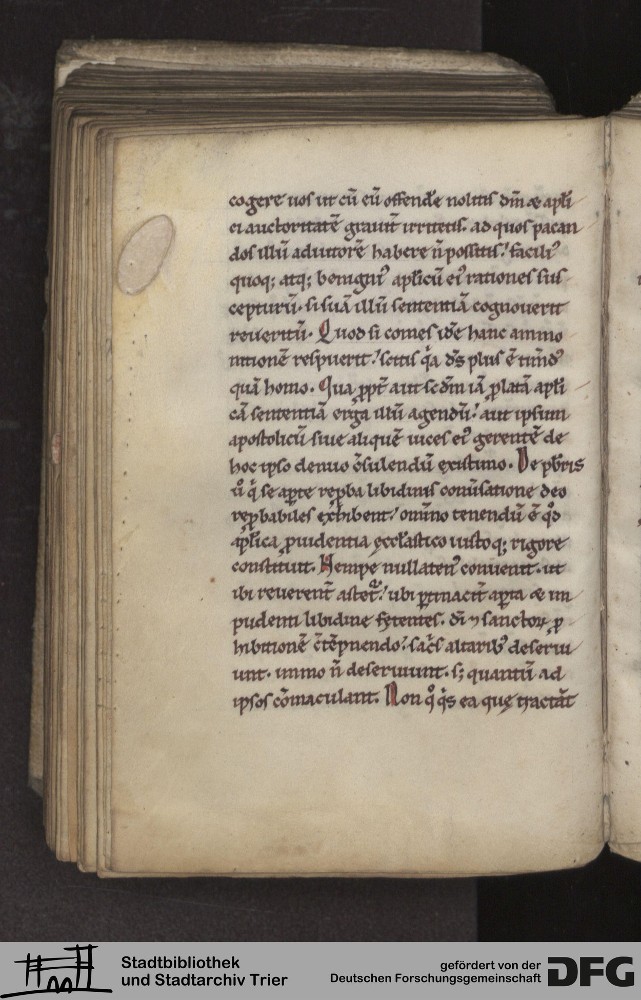 cogere uos ut cū eū offend̄e nolitis dm̄ & apl̄i
ci auctoritatē grauit̄ irritetis. ad quos pacan
dos illū adiutorē habere n̄ possitis. facili᷒
quoq; atq; benigni᷒ apl̄icū ei᷒ rationes sus
cepturū. si suā illū sententiā cognouerit
reueritū. Quod si comes idē hanc ammo
nitionē respuerit. scitis q̇a d̄s plus ē tim̄d᷒
quā homo. Qua ꝓpt̄ aut scdm̄ iā ꝓlatā apl̄i
cā sententiā erga illū agendū. aut ipsum
apostolicū siue aliquē uices ei᷒ gerentē de
hoc ipso denuo c̄sulendū existimo. De pb̄ris
ū q̇ se aꝑte reꝓba libidinis conūsatione deo
reꝓbabiles exhibent. omīno tenendū ē qd̄
apl̄ica ꝓuidentia ęccl̄astico iustoq; rigore
constituit. Nempe nullaten᷒ conuenit. ut
ibi reuerent̄ astet᷑. ubi ꝑtinacit̄ aꝑta & im
pudenti libidine fętentes. di ⁊ sanctoꝝ ꝓ
hibitionē c̄tēpnendo. sac̄s altarib᷒ deserui
unt. immo n̄ deseruiunt. s; quantū ad
ipsos cōmaculant. Non qͦ q̇s ea quę tractāt
Stadtbibliothek
und Stadtarchiv Trier
gefördert von der
Deutschen Forschungsgemeinschaft
DFG